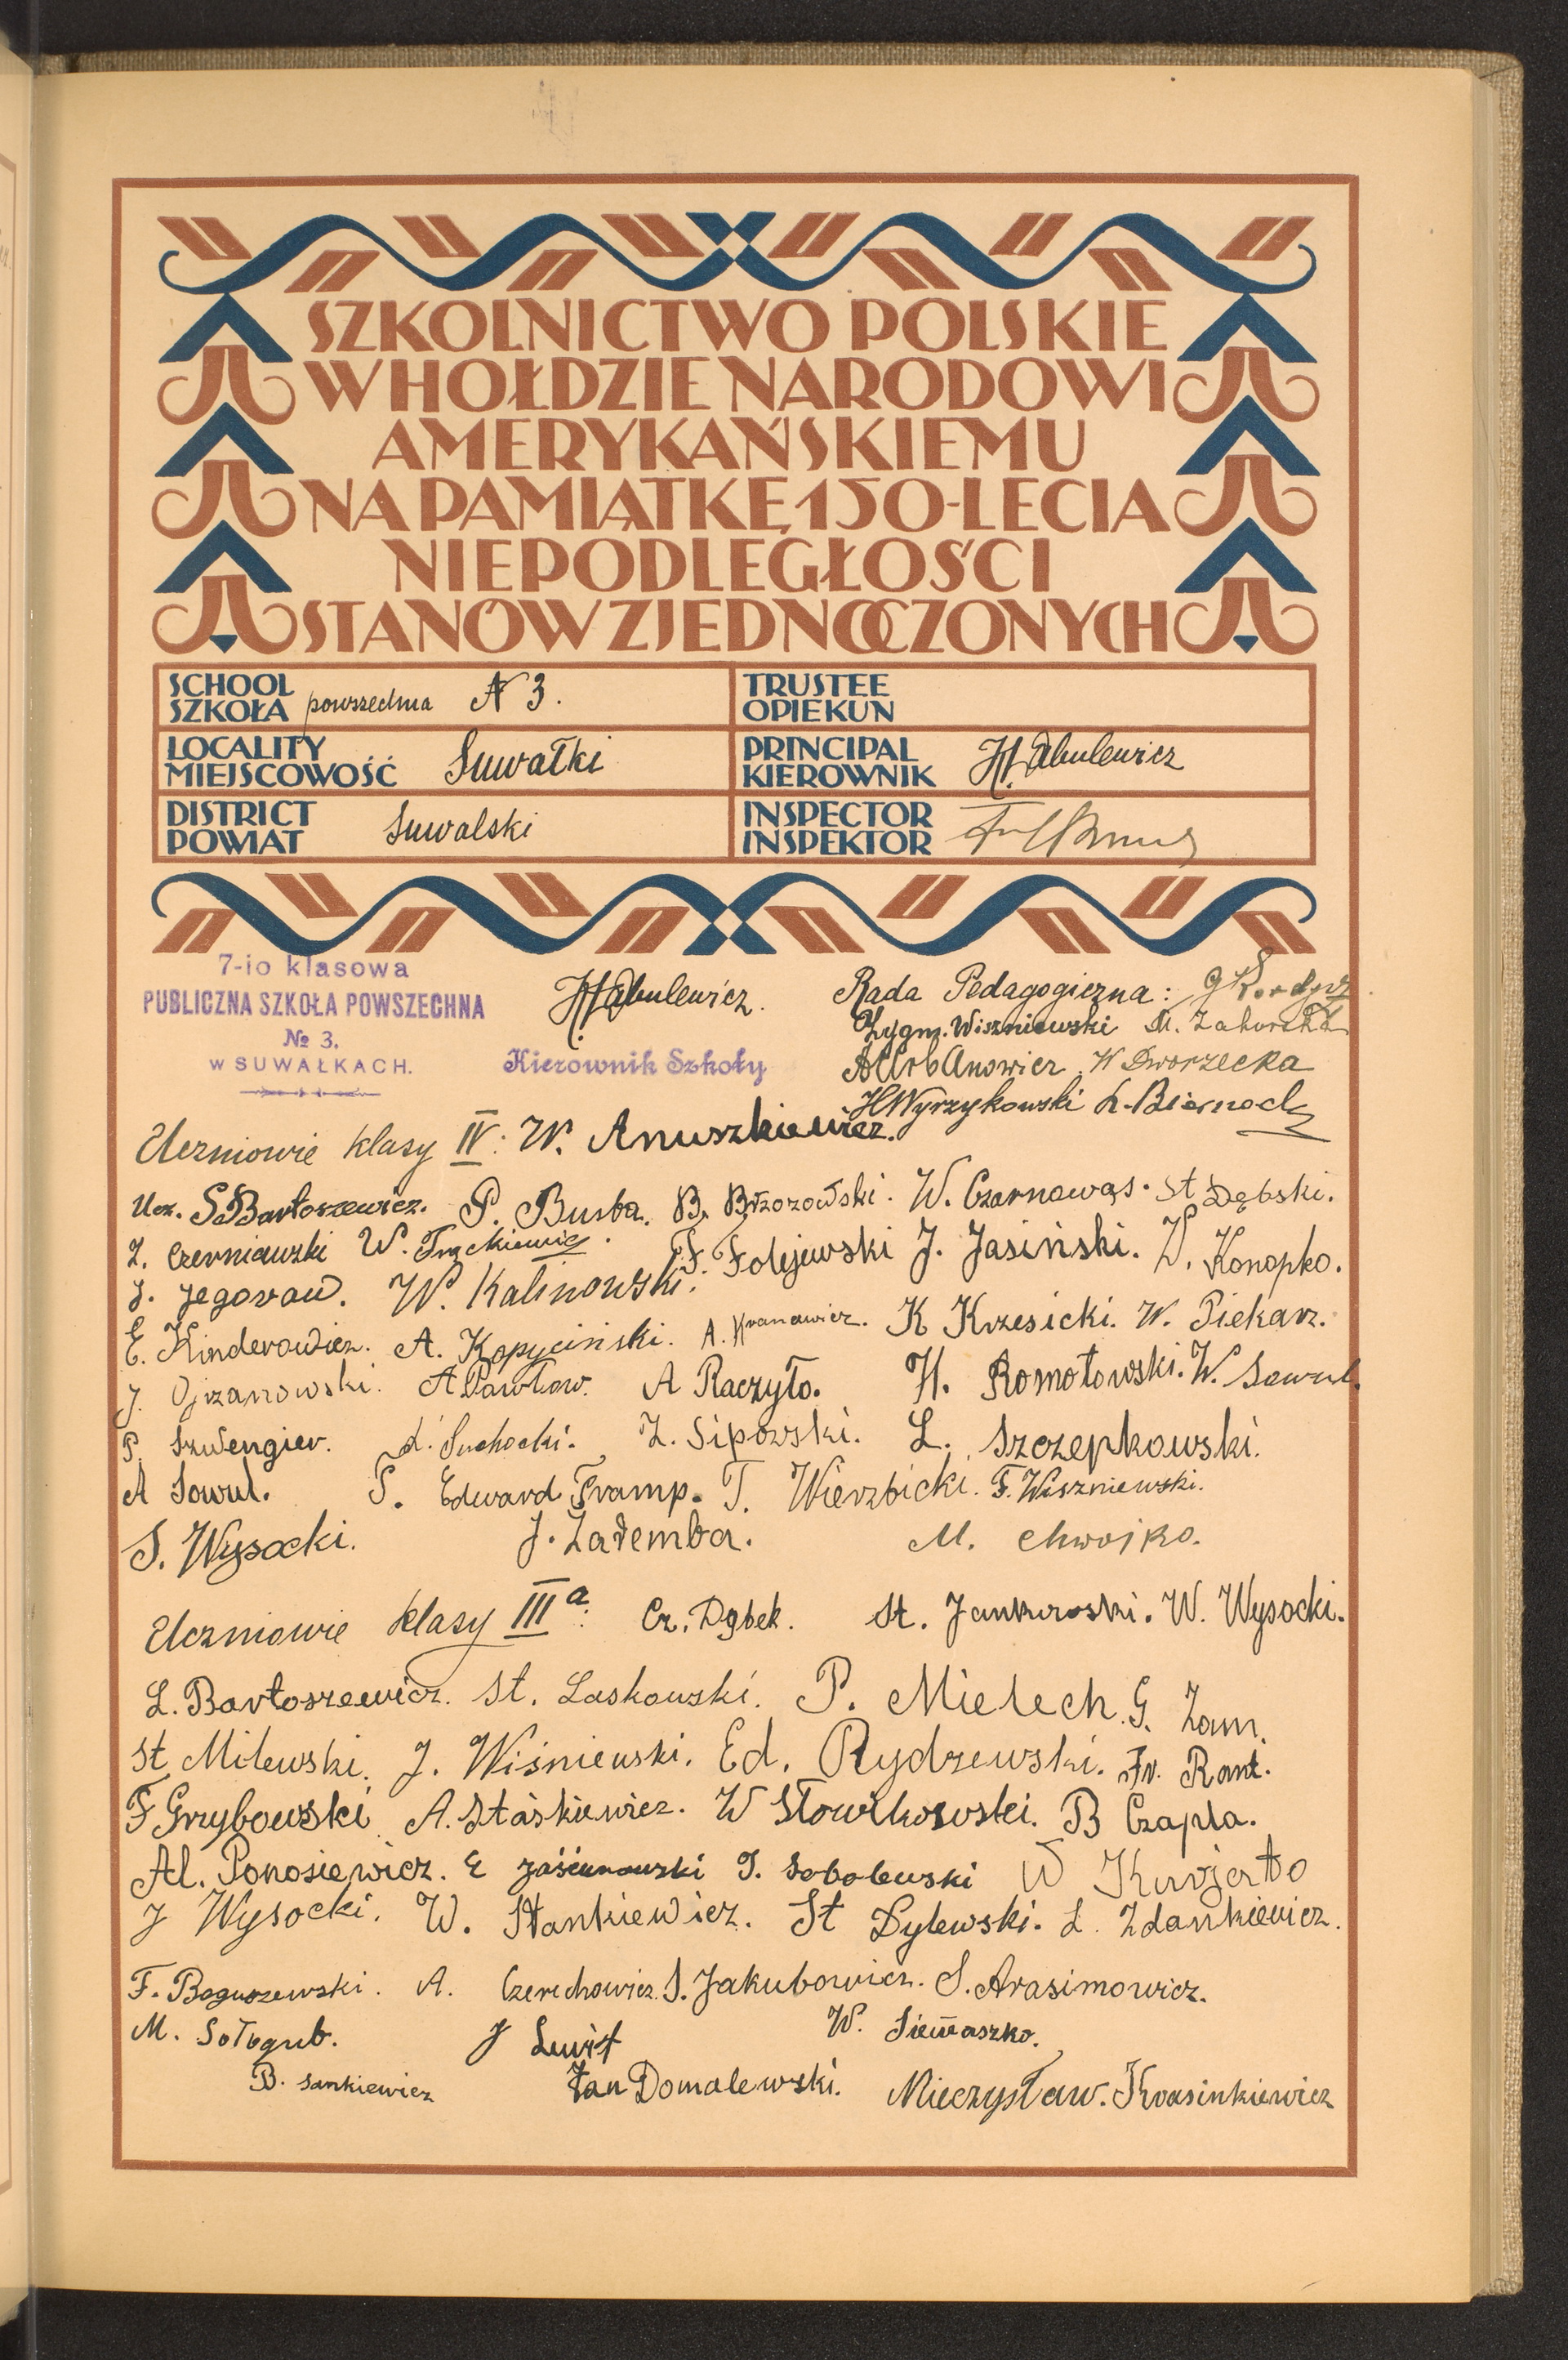 SZKOLNICTWO POLSKIE
W HOŁDZIE NARODOWI
AMERYKAŃSKIEMU
NA PAMIĄTKĘ 150-LECIA
NIEPODLEGŁOŚCI
STANÓW ZJEDNOCZONYCH
SCHOOL
SZKOŁA powszechna N 3.
TRUSTEE
OPIEKUN
LOCALITY
MIEJSCOWOŚĆ Suwałki
PRINCIPAL
KIEROWNIK H. Abulewicz
DISTRICT
POWIAT Suwalski
INSPECTOR
INSPEKTOR
7-io klasowa
PUBLICZNA SZKOŁA POWSZECHNA
№ 3.
W SUWAŁKACH.
H. Abulewicz.
Kierownik Szkoły
Rada Pedagogiczna:
Zygm. Wiszniewski M.
Urbanowicz W Dworzecka
H Wyrzykowski L. Biernacka
Uczniowie klasy IV: W. Anuszkiewicz.
Ucz. S. Bartoszewicz. P. Busta. B. Brzozowski. W. Czarnowąs. St Dębski.
Z. Czerniawski W. Frąckiewicz. F. Folejewski J. Jasiński. W. Konopko.
J. Jegorow. W. Kalinowski.
E. Kinderowicz. A. Kopyciński. A. K K Krzesicki. W. Piekarz.
J. Ojrzanowski. A Pawłow. A Raczyło. H. Romotowski. W. Sowul.
P. Szwengier. L. Suchocki. Z. Sipowski. L. Szczepkowski.
A Sowul. P. Edward Tramp. T. Wierzbicki. F. Wiszniewski.
S. Wysocki. J. Zaremba. M. Chwojko.
Uczniowie klasy III a: Cz. Dąbek. St. Jankowski. W. Wysocki.
L. Bartoszewicz. St. Laskowski. P. Mielech. G. Zam.
St Milewski. J. Wiśniewski. Ed. Rydzewski. Fr. Rant.
F Grzybowski A. Staśkiewicz. W Słowikowski. B Czapla.
Al. Ponosiewicz. E Jasionowski S. Sobolewski W
J Wysocki. W. Stankiewicz. St Dylewski. L. Zdankiewicz.
F. Boguszewski. A. Czerechowicz. S. Jakubowicz. S. Arasimowicz.
M. Sołogub. J W. Siemaszko.
B. Sankiewicz Jan Domalewski. Mieczysław. Krasinkiewicz